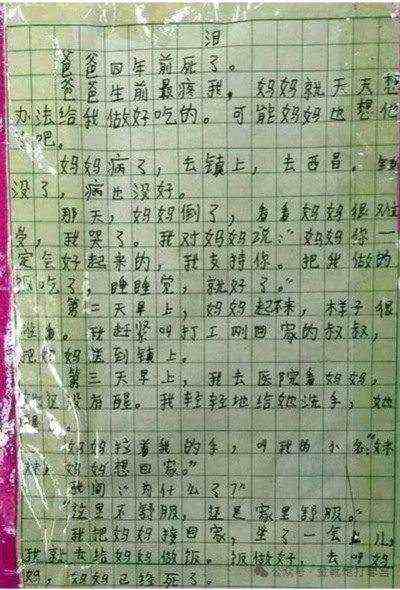 泪
爸爸四年前死了。
爸爸生前最疼我,妈妈就天天想
办法给我做好吃的。可能妈妈也想他
了吧。
妈妈病了,去镇上,去西昌。钱
没了,病也没好。
那天,妈妈倒了,看着妈妈很难
受,我哭了。我对妈妈说:“妈妈你一
定会好起来的,我支持你。把我做的
饭吃了,睡睡觉,就好了。
第二天早上,妈妈起不来,样子很
难看。我赶紧叫打工刚回家的叔叔,
把妈妈送到镇上。
第三天早上,我去医院看妈妈,
她还没有醒。我轻轻地给她洗手,她
妈妈拉着我的手,叫我的小名:“妹
妹,妈妈想回家。”
我问:“为什么了?”
“这里不舒服,还是家里舒服。”
我把妈妈接回家,坐了一会儿,
我就去给妈妈做饭。饭做好,去叫妈
妈,妈妈已经死了。
公众号